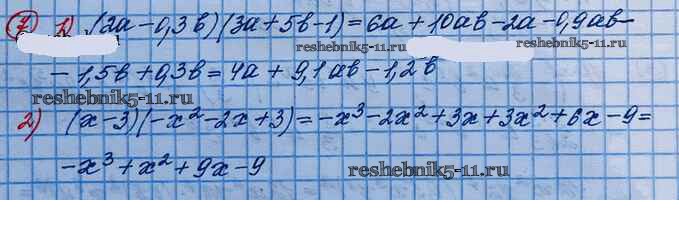 7) 1) (2а-0,3в)(3а+5в-1)=6а+10ав-2а-0,9ав-
reshebnik5-11.ru reshebnik5-11.ru
-1,5в+0,3в=4а+9,1ав-1,2в
reshebnik5-11.ru
2) (x-3)(-x²-2x+3)=-x³-2x²+3x+3x²+6x-9=
-x³+x²+9x-9
reshebnik5-11.ru